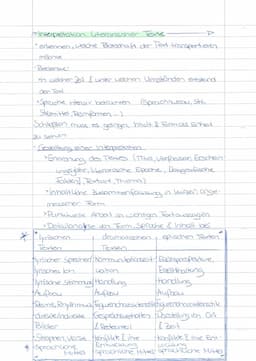 Interpretation literarischer Texte
• erkennen, welche Botschaft der Text transportieren
möchte
In welcher Zeit & unter welchen Umständen entstand
der Text
• Sprache intensiv betrachten (Sprachniveau, Stil,
Stilmittel, Reimformen, ...)
muss es gelingen, Inhalt & Form als Einheit
zu sehen
• Gestaltung einer Interpretation
• Einordnung des Textes (Titel, Verfasser, Erschein
ungsjahr, literarische Epoche,
Textart, Thema)
• Inhaltliche Zusammenfassung in knapper, ange-
messener Form
• Punktuelle Arbeit an wichtigen Textauszügen
• Detailanalyse von Form, Sprache & Inhalt bei
lyrischen dramatischen epischen Texten
Texten Texten
lyrischer Sprecher Kommunikationssit Erzählperspektive,
lyrisches Ich uation Erzählhaltung
lyrische Stimmung Handlung Handlung
Aufbau Aufbau Aufbau
Reim, Rhythmus Figurencharakteristik Figurencharakteristik
Gesprächsverhalten Darstellung von Ort
Bilder & Redeanteil & Zeit
Strophen, Verse Konflikte & ihre Konflikte & ihre Ent-
sprachliche Entwicklung wicklung
Mittel sprachliche Mittel sprachliche Mittel